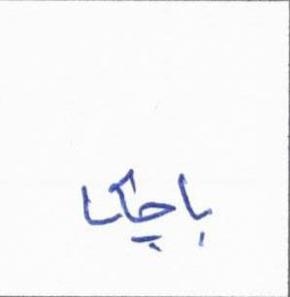 باچکا